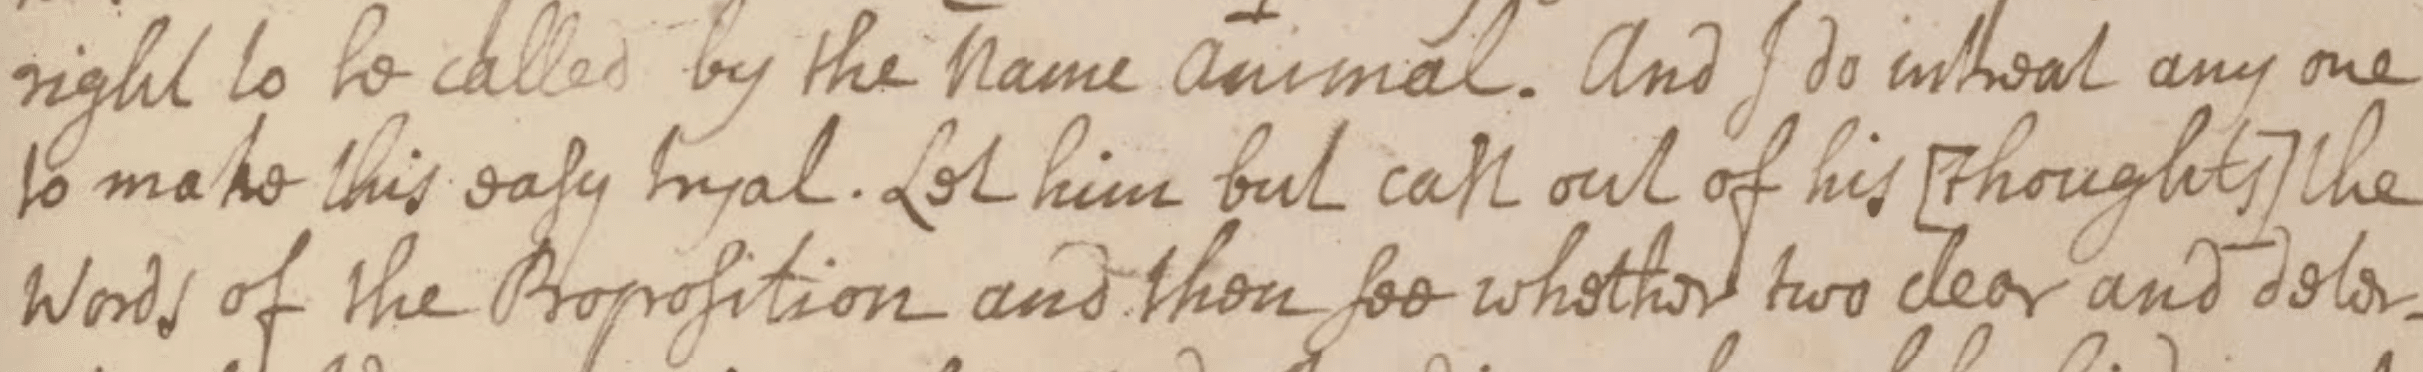 right to be called by the Name Animal. And I do intreat any one
to make this easy tryal. Let him but cast out of his [thoughts] the
Words of the Proposition and then see whether two clear and deter-